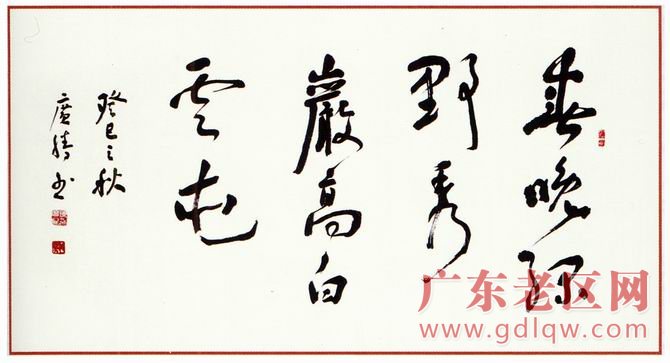 春晚绿
野秀
巖高白
雲屯
癸巳之秋
廣勝书
广东老区网
www.gdlqw.com